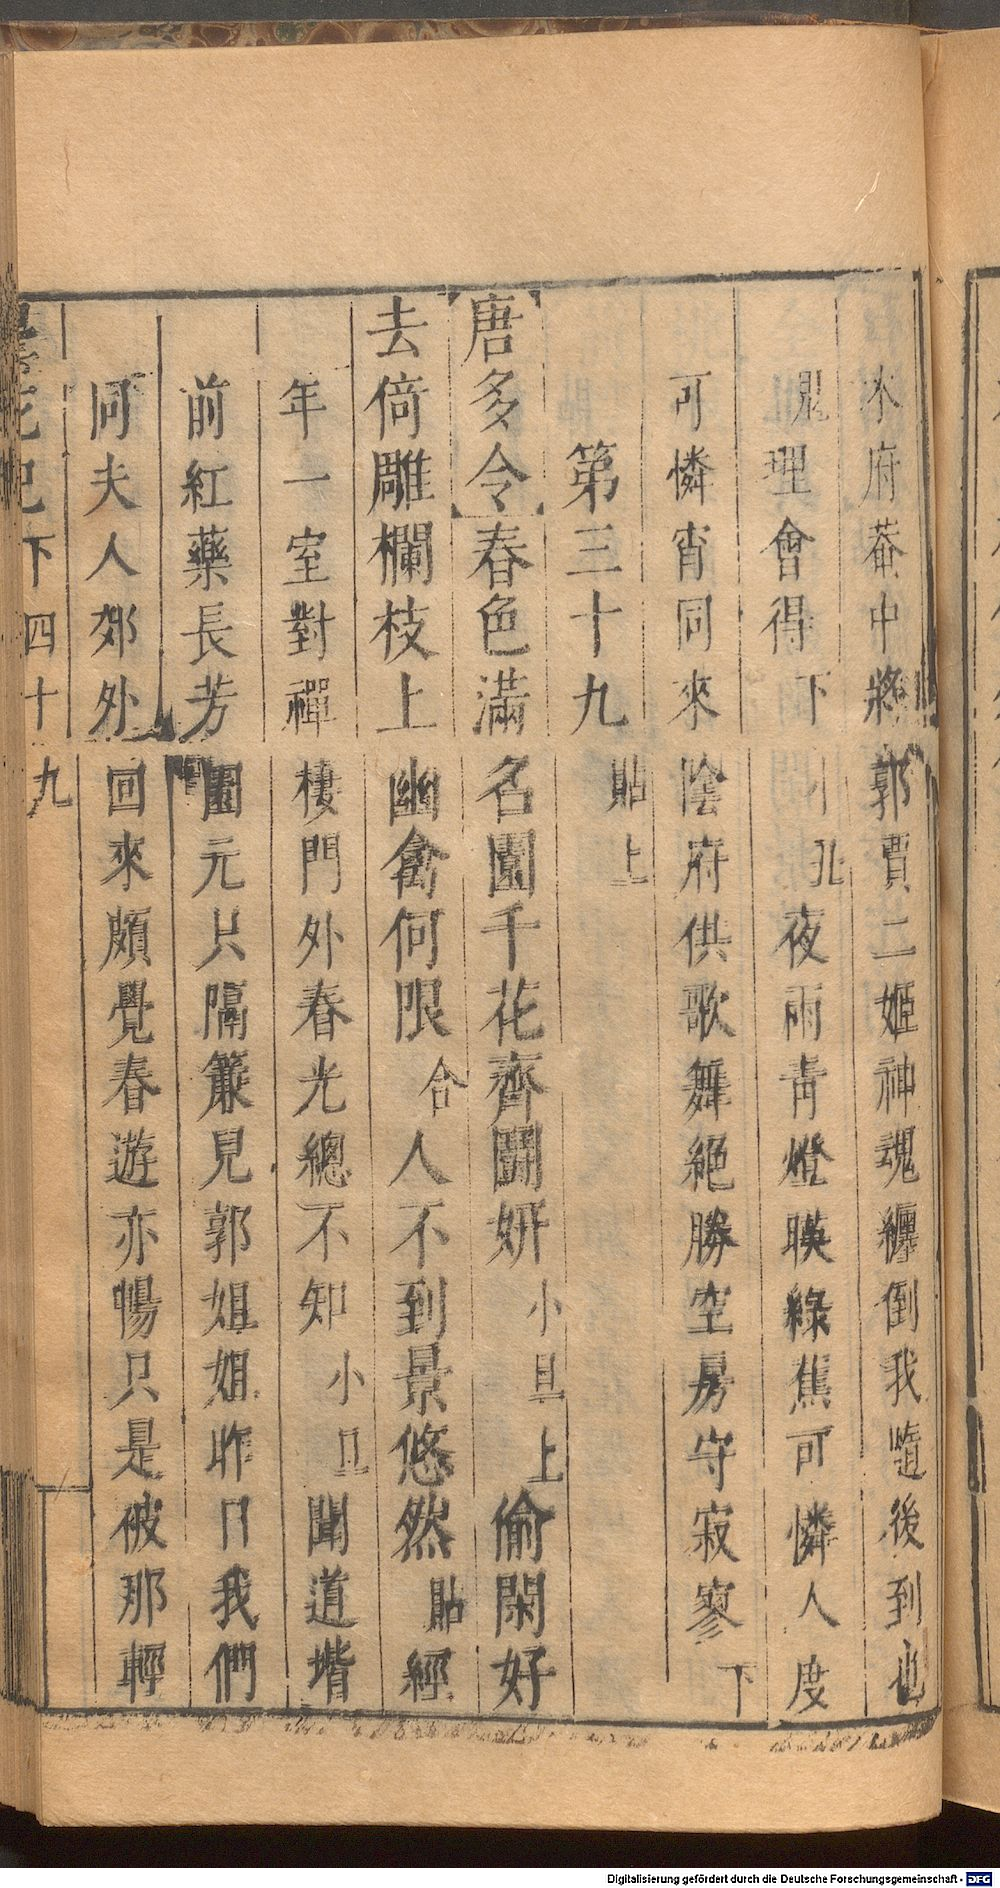 水府菴中將郭賈二姬神魂纏倒我隨後到也
鬼理會得下小北夜雨青燈暎綠蕉可憐人度
可憐宵同來陰府供歌舞絕勝空房守寂寥下
第三十九貼上
唐多令春色滿名園千花齊鬬妍小旦上偷閑好
去倚雕欄枝上幽禽何限合人不到景悠然貼經
年一室對禪棲門外春光總不知小旦聞道堦
前紅藥長芳園元只隔簾見郭姐姐昨日我們
同夫人郊外回來頗覺春遊亦暢只是被那輕
花記下四十九
Digitalisierung gefördert durch die Deutsche Forschungsgemeinschaft - DFG